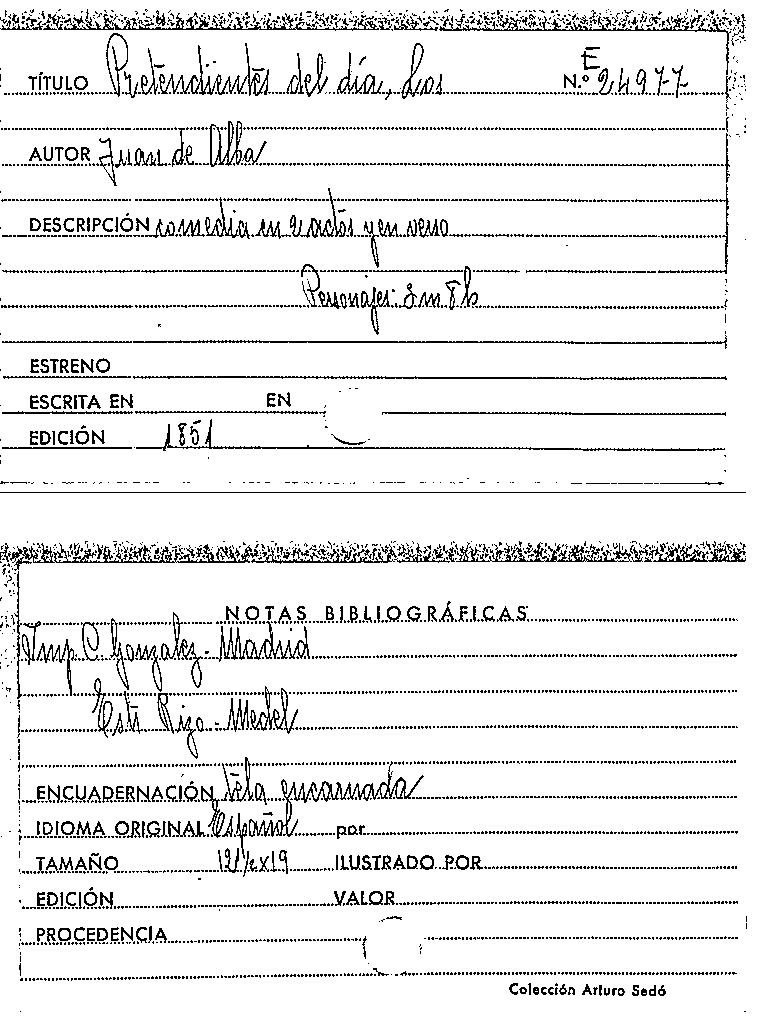 TÍTULO Pretendientes del día, Los N.º E 24977
AUTOR Juan de Alba
DESCRIPCIÓN comedia en 2 actos y en verso
Personajes: 8 h
ESTRENO
ESCRITA EN EN
EDICIÓN 1851
NOTAS BIBLIOGRÁFICAS
Imp C. Gonzalez - Madrid
Rizo - Medel
ENCUADERNACIÓN tela encarnada
IDIOMA ORIGINAL Español por
TAMAÑO 12 1/2 x 19 ILUSTRADO POR
EDICIÓN VALOR
PROCEDENCIA
Colección Arturo Sedó